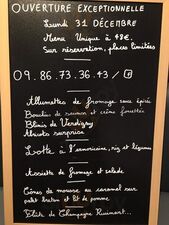 OUVERTURE EXCEPTIONNELLE
Lundi 31 DÉCEMBRE
Menu Unique à 48€.
Sur réservation, places limitées
09.86.73.36.43 /
Allumettes de fromage sous épicé
Boudin de saumon et crème fouettée
Blinis de
Abricots surprise
Lotte à l'armoricaine, riz et légumes
Assiette de fromage et salade
Cônes de mousse au caramel sur
petit breton et lit de pomme
de Champagne Ruinart...